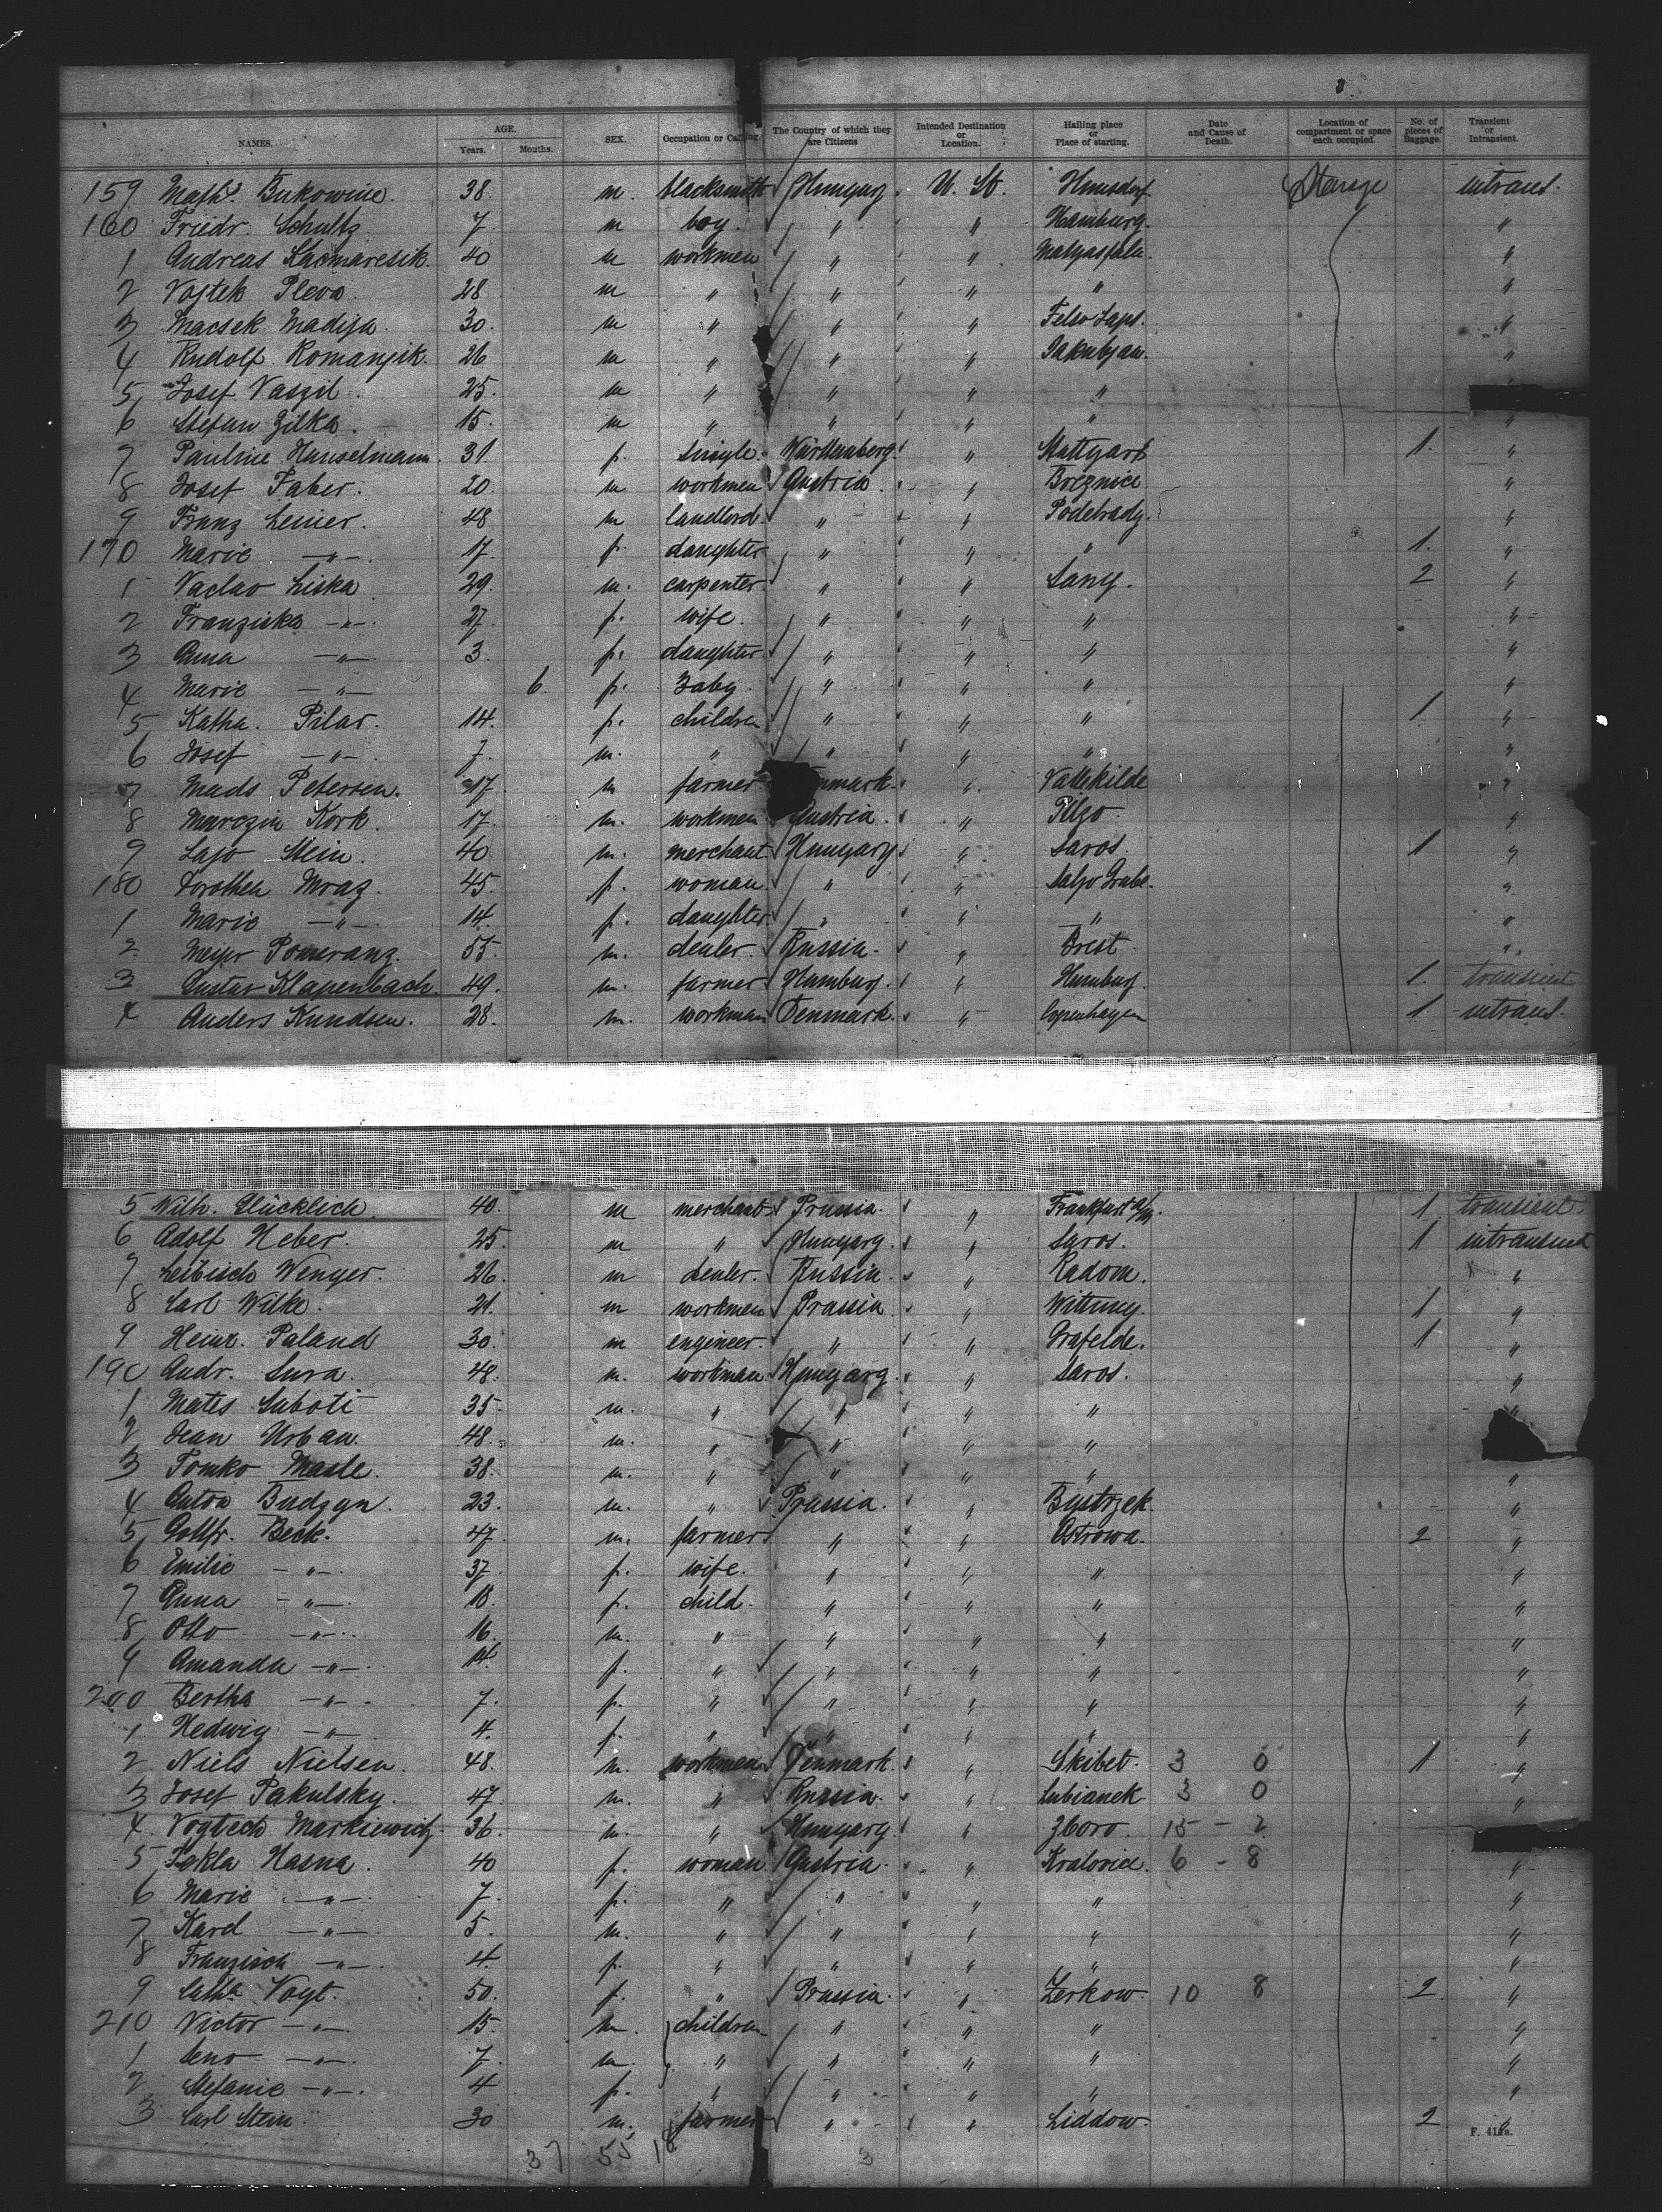 NAMES. AGE. Years. Months. SEX. Occupation or Calling. The Country of which they are Citizens Intended Destination or Location. Hailing place or Place of starting. Date and Cause of Death. Location of compartment or space each occupied. No. of pieces of Baggage. Transient or Intransient.
159 Math. Bukowine. 38. m. blacksmith Hungary U. St. Hunsdorf Steerage intrans.
160 Friedr. Schultz. 7. m boy. " " Hamburg. "
1 Andreas Kacmaresik. 40 m workmen " " "
2 Vojtek Pleva. 28 m " " " " "
3 Macsek Madeja. 30. m " " " Felso Laps. "
4 Rudolf Romanjik. 26 m " " " Jakubjan. "
5 Josef Vaszil. 25. m " " " "
6 Stefan Zilka. 15. m " " " " "
7 Pauline Hanselmann. 31. f. single. Württemberg. " Stuttgart 1. "
8 Josef Faber. 20. m workmen Austria. " Breznice "
9 Franz Leiner. 48 m landlord. " " Podebrady. "
170 Marie —"— 17. f. daughter " " " 1. "
1 Vaclav Liska 29. m. carpenter " " Lany. 2 "
2 Franziska —"— 27. f. wife. " " " "
3 Anna —"— 3. f. daughter. " " " "
4 Marie —"— 6. f. Baby. " " " "
5 Katha. Pilar. 14. f. children " " " 1. "
6 Josef —"— 7. m. " " " " "
7 Mads Petersen. 17. m farmer nmark. " Vallekilde "
8 Marczin Kork. 17. m. workmen Austria. " Pilzo. "
9 Lajo Stein. 40. m. merchant Hungary " Saros. 1 "
180 Dorothea Mraz. 45. f. woman. " " "
1 Marie —"— 14. f. daughter " " " "
2 Meyer Pomeranz. 55. m. dealer. Russia. " Brest. "
3 Gustav Klapenbach. 49. m. farmer Hamburg. " Hamburg. 1. transient
4 Anders Knudsen. 28. m. workman Denmark. " Copenhagen 1 intrans.
5 Wilh. Glücklich. 40. m merchant Prussia. " Frankfurt a/M. 1 transient.
6 Adolf Heber. 25. m " Hungary. " Saros. 1 intransient
7 Leibisch Wenger. 26. m dealer. Russia. " Radom. "
8 Carl Wilke. 21. m workmen Prussia " 1 "
9 Heinr. Paland 30. m engineer. " " Grafelde. 1 "
190 Andr. Sura. 48. m. workman Hungary. " Saros. "
1 Mates Suboti 35. m. " " " " "
2 Jean Urban. 48. m. " " " "
3 Tomko Masle. 38. m. " " " " "
4 Anton Budzyn. 23. m. " Prussia. " Bystrzek. "
5 Gottfr. Beck. 47. m. farmer " " Ostrowa. 2 "
6 Emilie —"— 37. f. wife. " " " "
7 Anna —"— 18. f. child. " " " "
8 Otto —"— 16. m. " " " " "
9 Amanda —"— 14. f. " " " " "
200 Bertha —"— 7. f. " " " " "
1 Hedwig —"— 4. f. " " " " "
2 Niels Nielsen. 48. m. workmen Denmark. " Skibet. 3 0 1 "
3 Josef Pakulsky. 47. m. " Russia. " Lubianek 3 0 "
4 Vogtech Markiewicz. 36. m. " Hungary. " Zboro. 15 - 2
5 Tekla Hasna. 40 f. woman Austria. " Kralovice. 6 - 8 "
6 Marie —"— 7. f. " " " " "
7 Karel —"— 5. m. " " " " "
8 Franzisch —"— 4. f. " " " " "
9 Catha Vogt. 50. f. " Prussia. " Zerkow. 10 8 2. "
210 Victor —"— 15. m. children " " " "
1 —"— 7. m. " " " " "
2 Stefanie —"— 4 f. " " " " "
3 Carl Stein. 30 m. farmer " " Liddow. 2
37 55 18 3